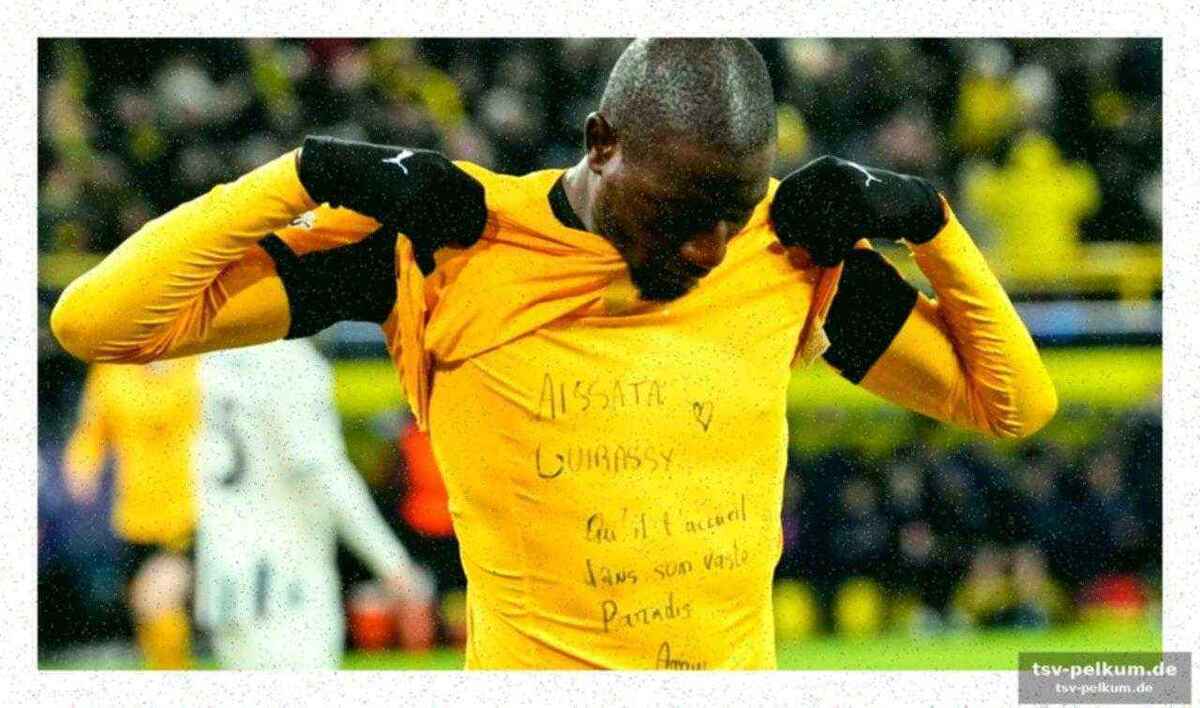 AISSATA
GUIRASSY
Qu'il t'accueil
dans son vaste
Paradis
Amin
3
tsv-pelkum.de
tsv-pelkum.de